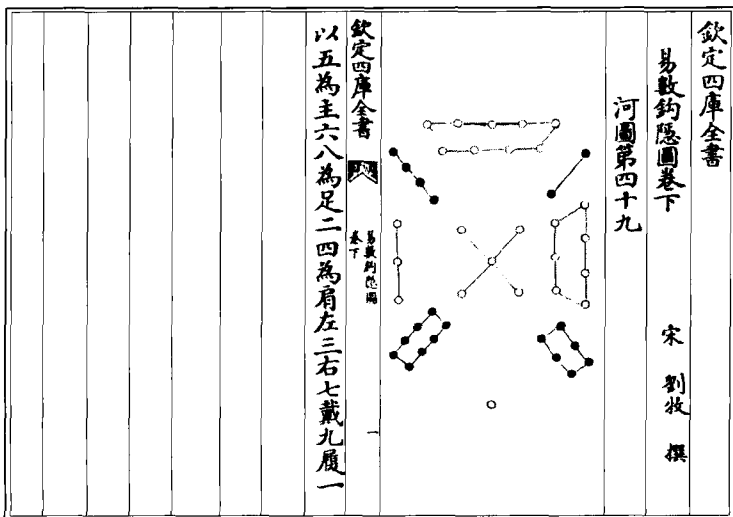 欽定四庫全書
易數鈎隱圖卷下
宋 劉牧 撰
河圖第四十九
欽定四庫全書
易數鈎隱圖
卷下
一
以五為主六八為足二四為肩左三右七戴九履一